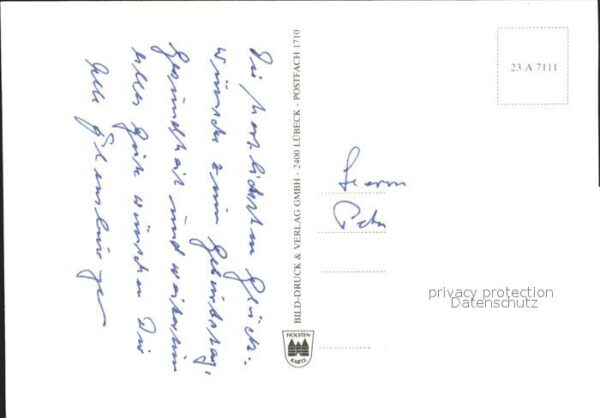 Die herzlichsten Glück-
wünsche zum Geburtstag,
Gesundheit und weiterhin
alles Gute wünschen Dir
Alle
BILD-DRUCK & VERLAG GMBH - 2400 LÜBECK - POSTFACH 1710
HOLSTEN
KARTE
23 A 7111
Herrn
Peter
privacy protection
Datenschutz